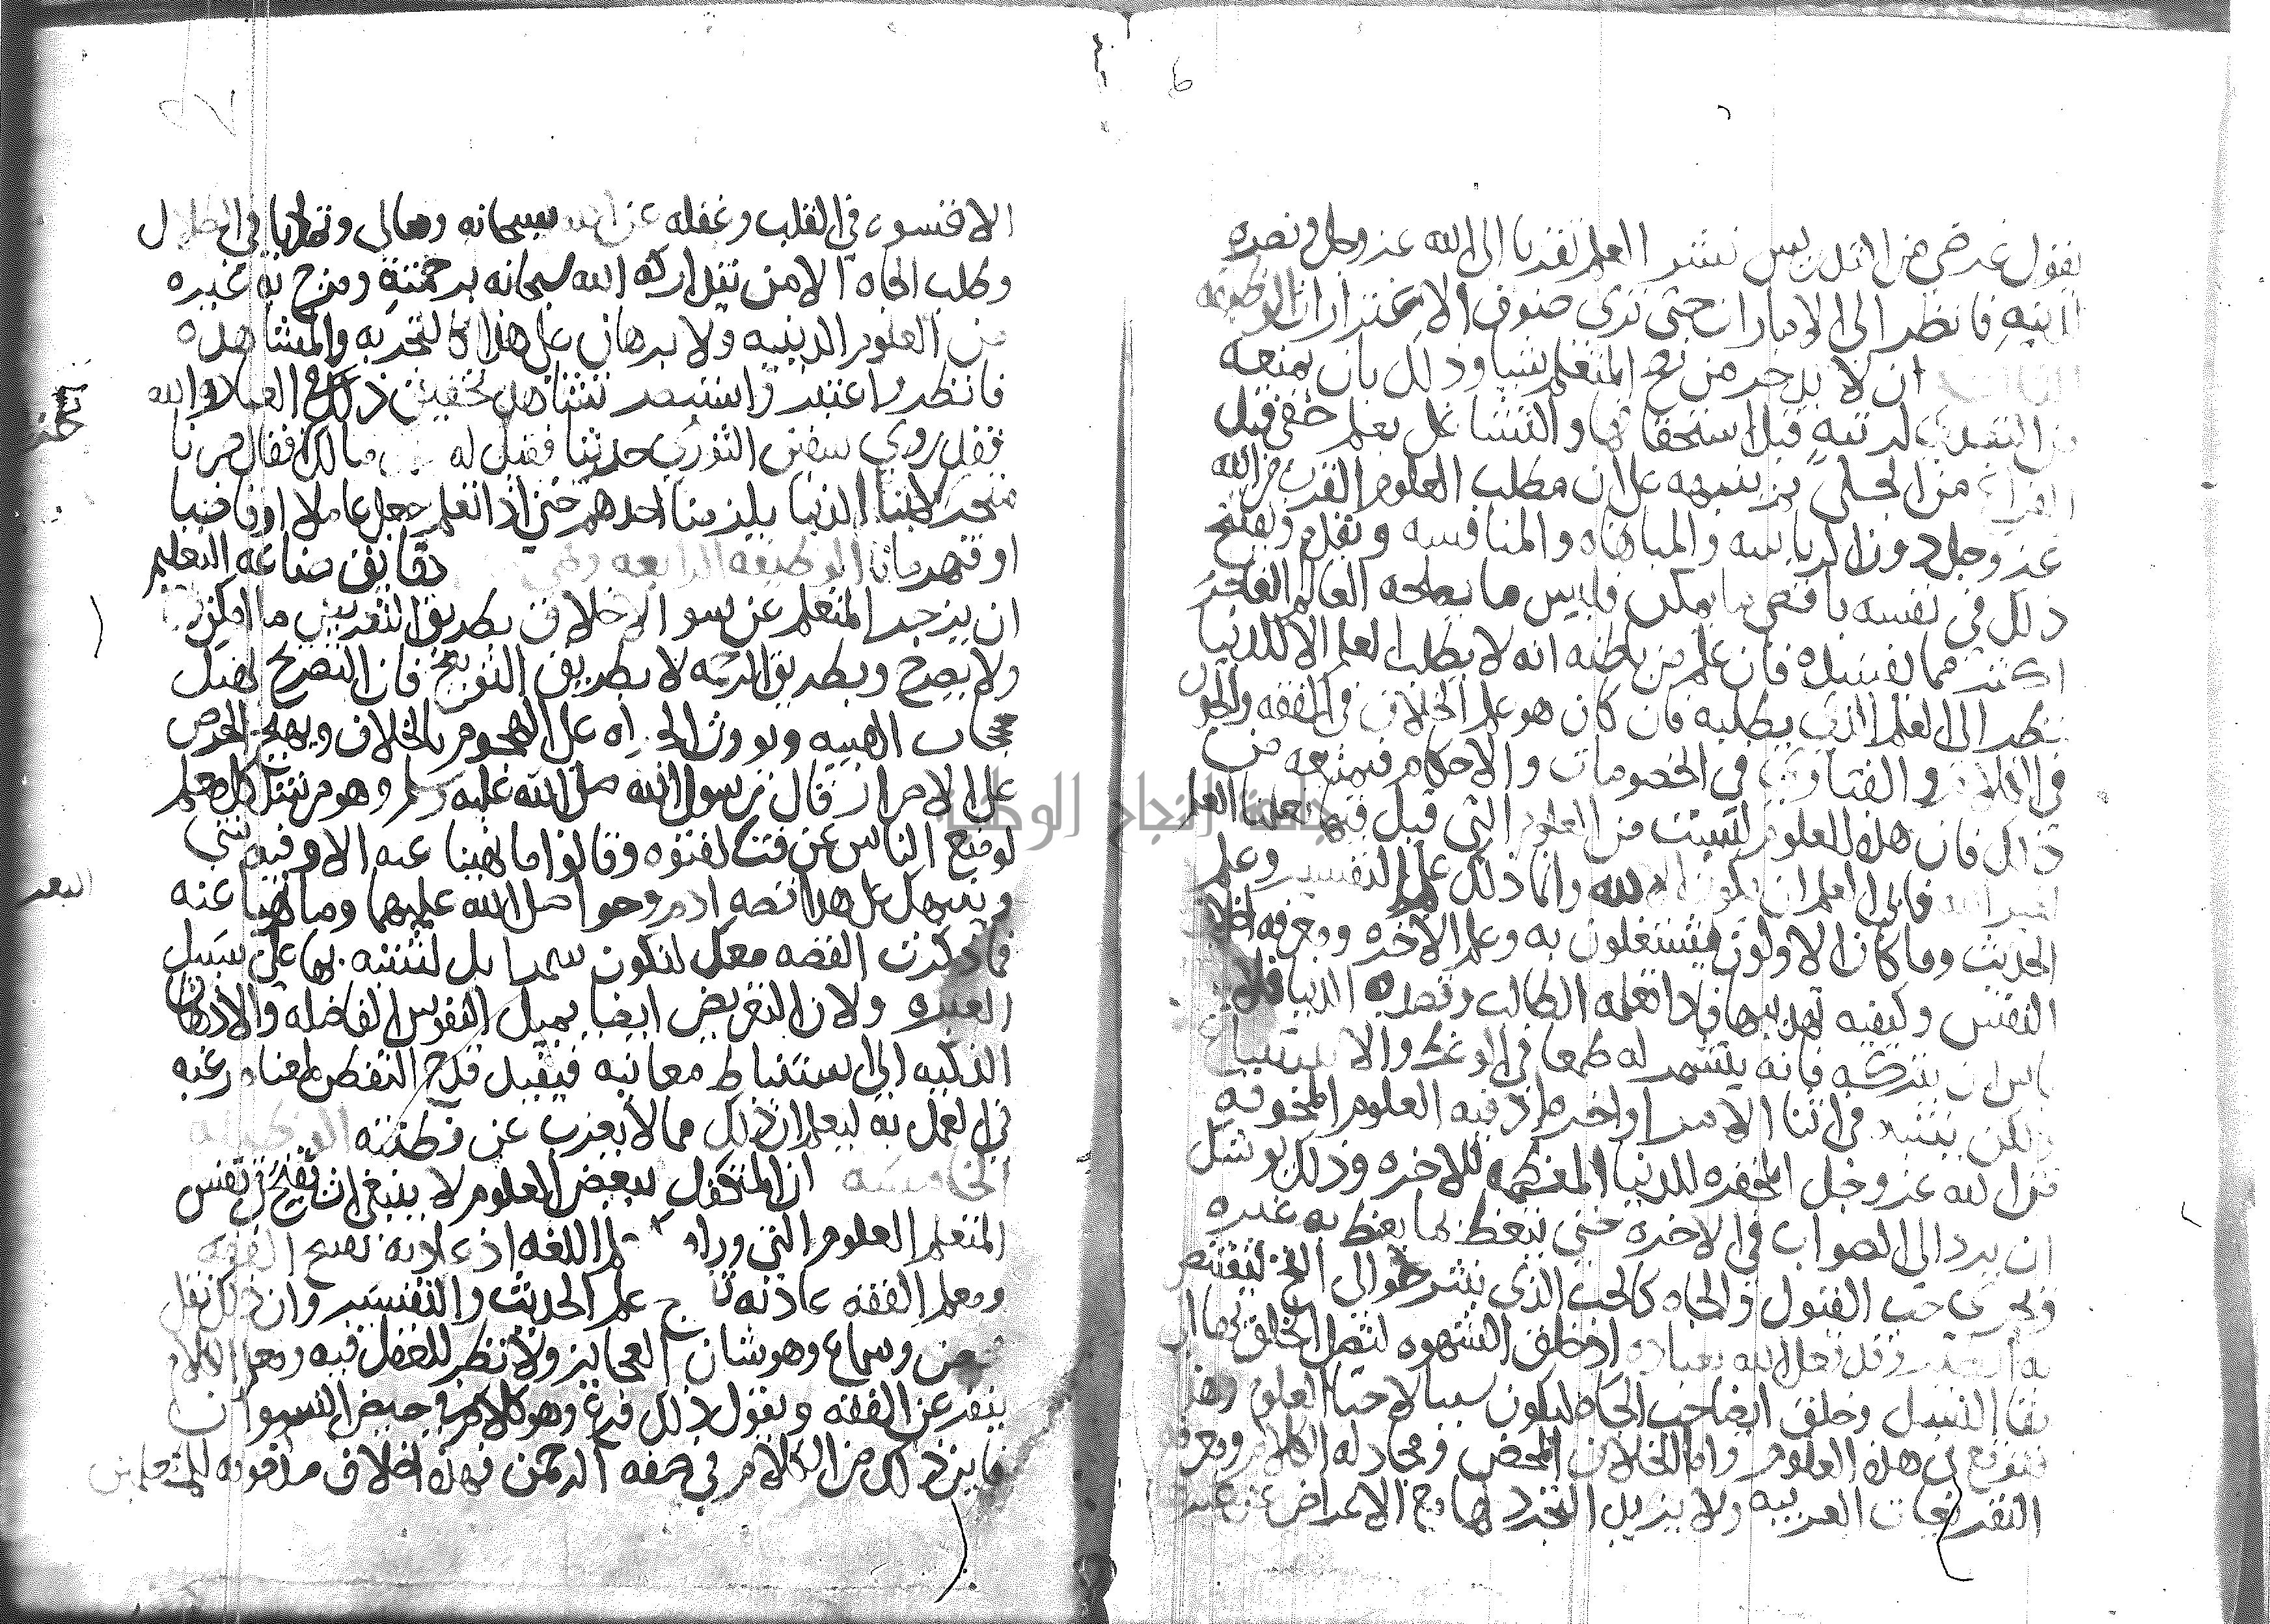 يقول غرضي من التدريس نشر العلم تقربا الى الله عز وجل ونصره
لدينه فانظر الى الامارات حتى ترى صنوف الاغترارات الوظيفه
ان لا يدخر من نصح المتعلم شيا وذلك بان يمنعه
من التصدي لرتبه قبل استحقاقها والتشاغل بعلم خفي قبل
الفراغ من الجلي ثم ينبهه على ان مطلب العلوم القرب من الله
عز وجل دون الرياسه والمباهاه والمنافسه ويقدم ويقبح
ذلك في نفسه باقصى ما يمكن فليس ما يصلحه العالم الفاجر
اكثر مما يفسده فان علم من باطنه انه لا يطلب العلم الا للدنيا
نظر الى العلم الذي يطلبه فان كان هو علم الخلاف في الفقه والجدل
في الكلام والفتاوى في الخصومات والاحكام فيمنعه من
ذلك فان هذه العلوم ليست من العلوم التي قيل فيها تعلمنا العلم
لغير الله فابى العلم ان يكون الا لله وانما ذلك علم التفسير وعلم
الحديث وما كان الاولون يشتغلون به وعلم الاخره ومعرفه اخلاق
النفس وكيفيه تهذيبها فاذا تعلمه الطالب وقصده الدنيا فلا
باس ان يتركه فانه يتشمر له طمعا في الوعظ والاستتباع
ولكن يتنبه في اثنا الامر او اخره اذ فيه العلوم المخوفه
من الله عز وجل المحقره للدنيا المعظمه للاخره وذلك يوشك
ان يرد الى الصواب في الاخره حتى يتعظ بما يعظ به غيره
ويجري حب القبول والجاه كالحب الذي ينثر حوالي الفخ ليقتنص
به الطير وقد فعل الله بعباده اذ خلق الشهوه ليصل الخلق بها الى
بقا النسل وخلق ايضا حب الجاه ليكون سببا لاحيا العلوم وهذا
متوقع في هذه العلوم واما الخلاف المحض ومجادله الكلام ومعرفه
التفريعات الغريبه ولا يزيد التجرد لها مع الاعراض عن غيرها
الا قسوه في القلب وغفله عن الله سبحانه وتعالى وتماديا في الضلال
وطلب الجاه الا من تداركه الله سبحانه برحمته ومزج به غيره
من العلوم الدينيه ولا برهان على هذا كالتجربه والمشاهده
فانظر واعتبر واستبصر تشاهد تحقيق ذلك في العباد والله
فقد روي سفين الثوري حزينا فقيل له مالك فقال صرنا
متجر لابنا الدنيا يلزمنا احدهم حتى اذا تعلم جعل عاملا او قاضيا
او قهرمانا الوظيفه الرابعه وهي دقايق صناعه التعليم
ان يزجر المتعلم عن سو الاخلاق بطريق التعريض ما امكن
ولا يصرح وبطريق الرحمه لا بطريق التوبيخ فان التصريح يهتك
حجاب الهيبه ويورث الجراه على الهجوم بالخلاف ويهيج الحرص
على الاصرار قال رسول الله صلى الله عليه وسلم وهو مرشد كل معلم
لو منع الناس عن فت البعر لفتوه وقالوا ما نهينا عنه الا وفيه شي
وينبهك على هذا قصه ادم وحوا صلى الله عليهما وما نهيا عنه
فما ذكرت القصه معك لتكون سمرا بل لتتنبه بها على سبيل
العبره ولان التعريض ايضا يميل النفوس الفاضله والاذهان
الذكيه الى استنباط معانيه فيفيد فرح التفطن لمعناه رغبه
في العمل به ليعلم ان ذلك مما لا يعزب عن فطنته الوظيفه
الخامسه ان المتكفل ببعض العلوم لا ينبغي ان يقبح في نفس
المتعلم العلوم التي وراه كمعلم اللغه اذ عادته تقبيح الفقه
ومعلم الفقه عادته تقبيح علم الحديث والتفسير وان ذلك نقل
محض وسماع وهو شان العجايز ولا نظر للعقل فيه ومعلم الكلام
ينفر عن الفقه ويقول ذلك فرع وهو كلام في حيض النسوان
فاين ذلك من الكلام في صفه الرحمن فهذه اخلاق مذمومه للمتعلمين
البعر